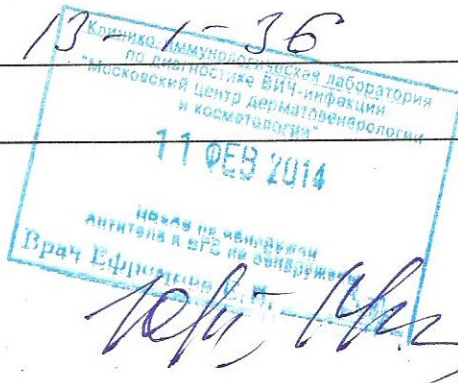 13-1-36
Клинико-иммунологическая лаборатория
по диагностике ВИЧ-инфекции
"Московский центр дерматовенерологии
и косметологии"
11 ФЕВ 2014
не обнаружен
Антитела к ВГС не обнаружены
Врач